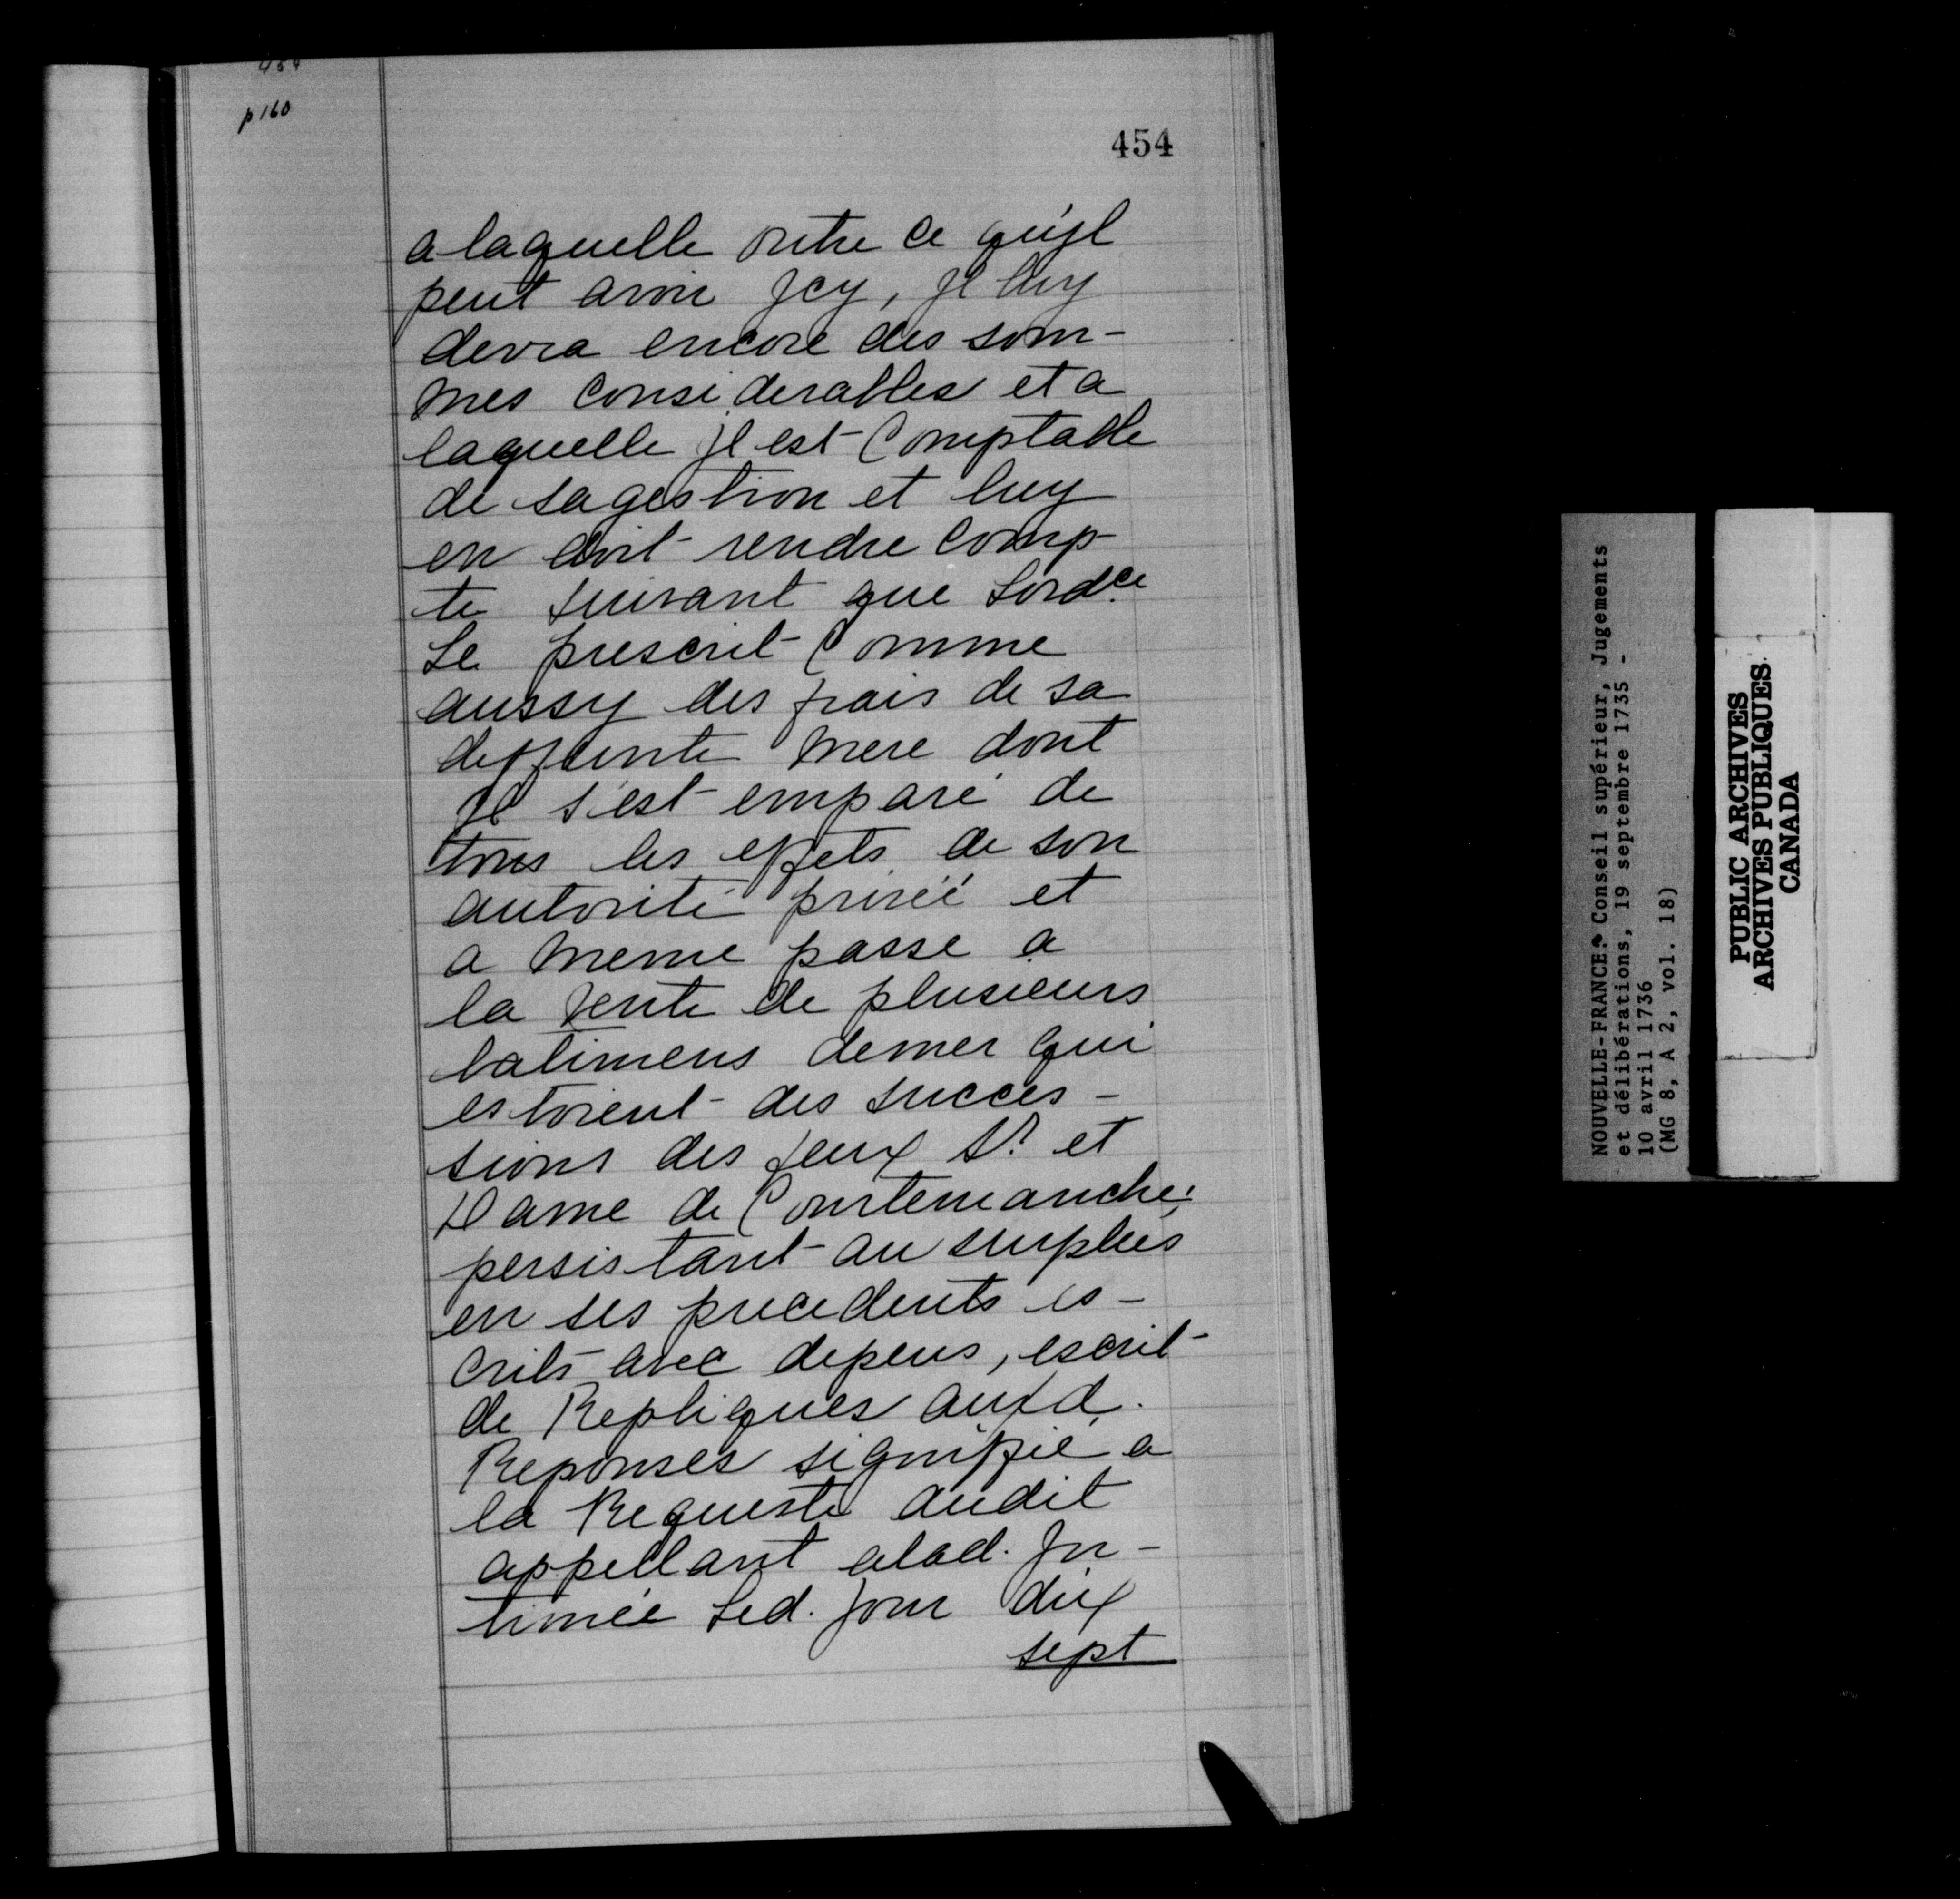 454
p 160
454
a laquelle outre ce qu'jl
peut avoir Jcy, Jl luy
devra encore des som-
mes considerables et a
laquelle Jl est Comptable
de sa gestion et luy
en doit rendre Comp-
te suivant que Lordce
Le prescrit Comme
aussy des frais de sa
deffunte Mere dont
Jl s'est emparé de
tous les effets de son
autorité privéé et
a Meme passe a
la vente de plusieurs
batimens demer qui
estoient des succes-
sions des feux Sr. et
Dame de Courtemanche;
persistant au surplus
en ses precedents es-
crits avec depens, escrit
de Repliques auxd.
Reponses signiffié a
la Requeste dudit
appellant alad. Jn-
timée Led. Jour dix
sept
NOUVELLE-FRANCE. Conseil supérieur, Jugements
et délibérations, 19 septembre 1735 -
10 avril 1736
(MG 8, A 2, vol. 18)
PUBLIC ARCHIVES
ARCHIVES PUBLIQUES
CANADA